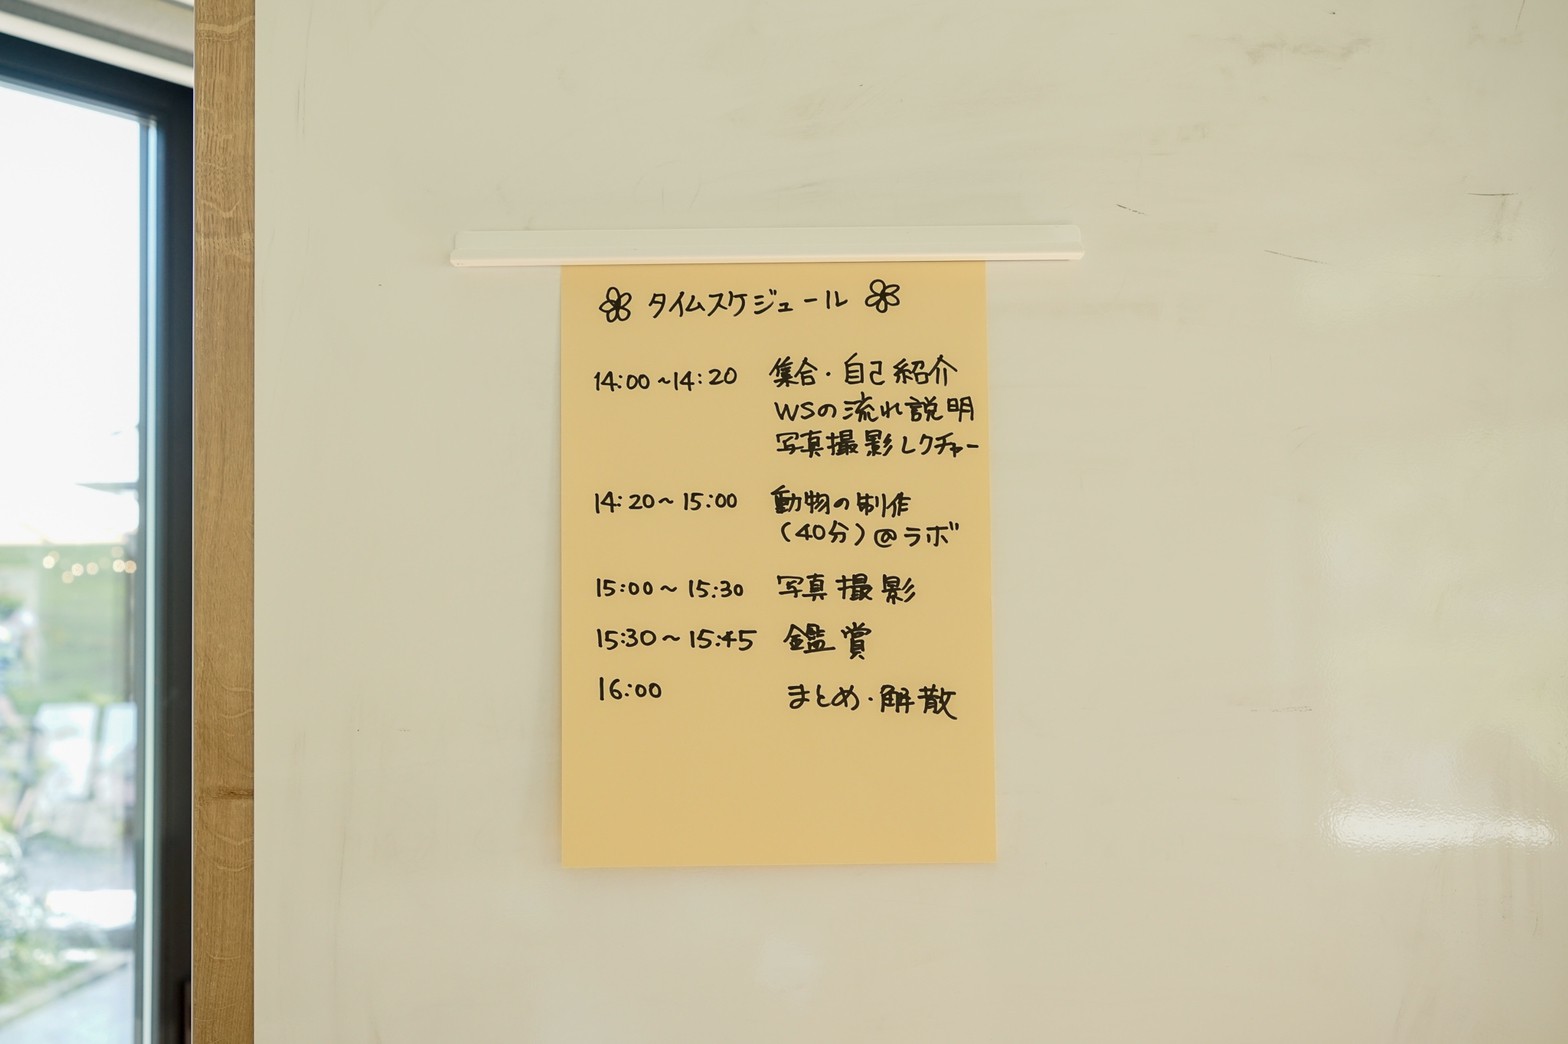 タイムスケジュール
14:00~14:20 集合・自己紹介
WSの流れ説明
写真撮影レクチャー
14:20~15:00 動物の制作
(40分)@ラボ
15:00~15:30 写真撮影
15:30~15:45 鑑賞
16:00 まとめ・解散